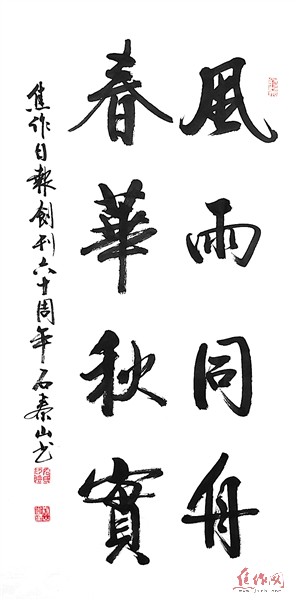 風雨同舟
春華秋實
焦作日報創刊六十周年石泰山书
焦作网